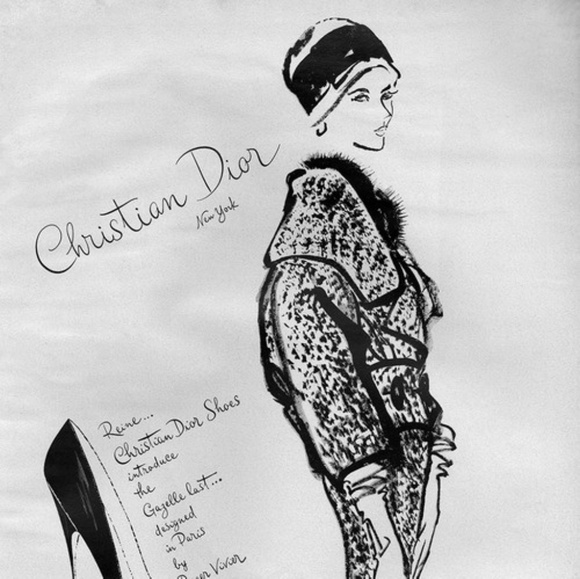 Christian Dior
New York
Reine...
Christian Dior Shoes
introduce
the
Gazelle last...
designed
in Paris
by
Roger Vivier